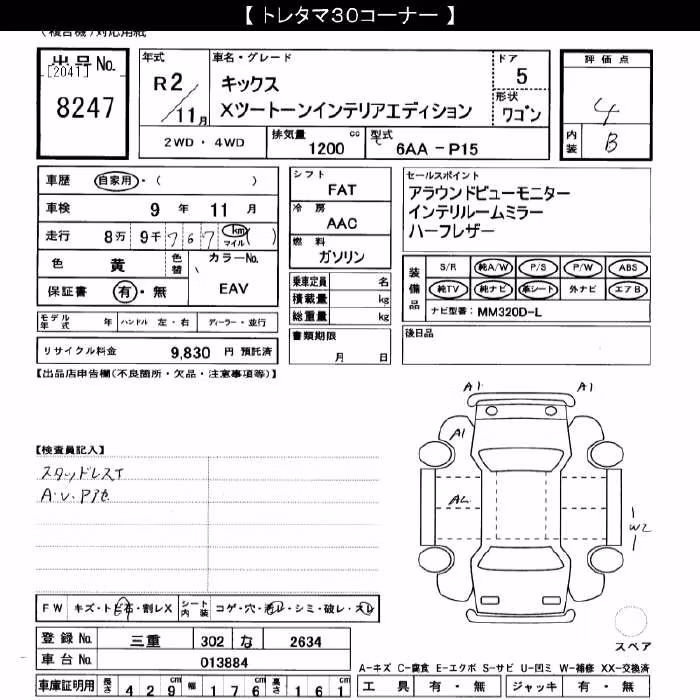 【トレタマ30コーナー】
(複合機)対応用紙
出品No. [2041] 8247
年式 R2/11月
車名・グレード キックス
Xツートーンインテリアエディション
ドア 5
形状 ワゴン
2WD・4WD
排気量 1200 cc
型式 6AA-P15
評価点 4
内装 B
車歴 自家用・( )
車検 9年 11月
走行 8万9千767 km マイル ( )
色 黄 色替 カラーNo. EAV
保証書 有・無
シフト FAT
冷房 AAC
燃料 ガソリン
乗車定員 名
積載量 kg
総重量 kg
書類期限 月 日
セールスポイント
アラウンドビューモニター
インテリルームミラー
ハーフレザー
装備品
S/R 純A/W P/S P/W ABS
純TV 純ナビ 革シート 外ナビ エアB
ナビ型番: MM320D-L
後日品
モデル年式 年 ハンドル 左・右 ディーラー・並行
リサイクル料金 9,830 円 預託済
【出品店申告欄(不良箇所・欠品・注意事項等)】
【検査員記入】
スタッドレスT
A1 A1
A1
A2
W2
FW キズ・トビ石・割レX
シート内装 コゲ・穴・汚レ・シミ・破レ・スレ
登録No. 三重 302 な 2634
車台No. 013884
スペア
A-キズ C-腐食 E-エクボ S-サビ U-凹ミ W-補修 XX-交換済
車庫証明用 長さ 429cm 幅 176cm 高さ 161cm
工具 有・無 ジャッキ 有・無